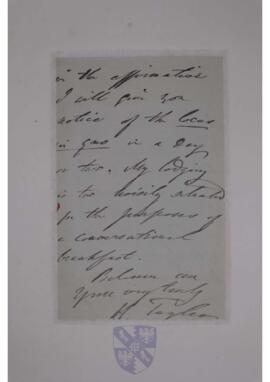 in the affirmative
I will give you
notice of the locus
in quo in a day
or two. My lodging
is too noisily situated
for the purposes of
a conversational
breakfast.
Believe me
Yours very truly
H Taylor